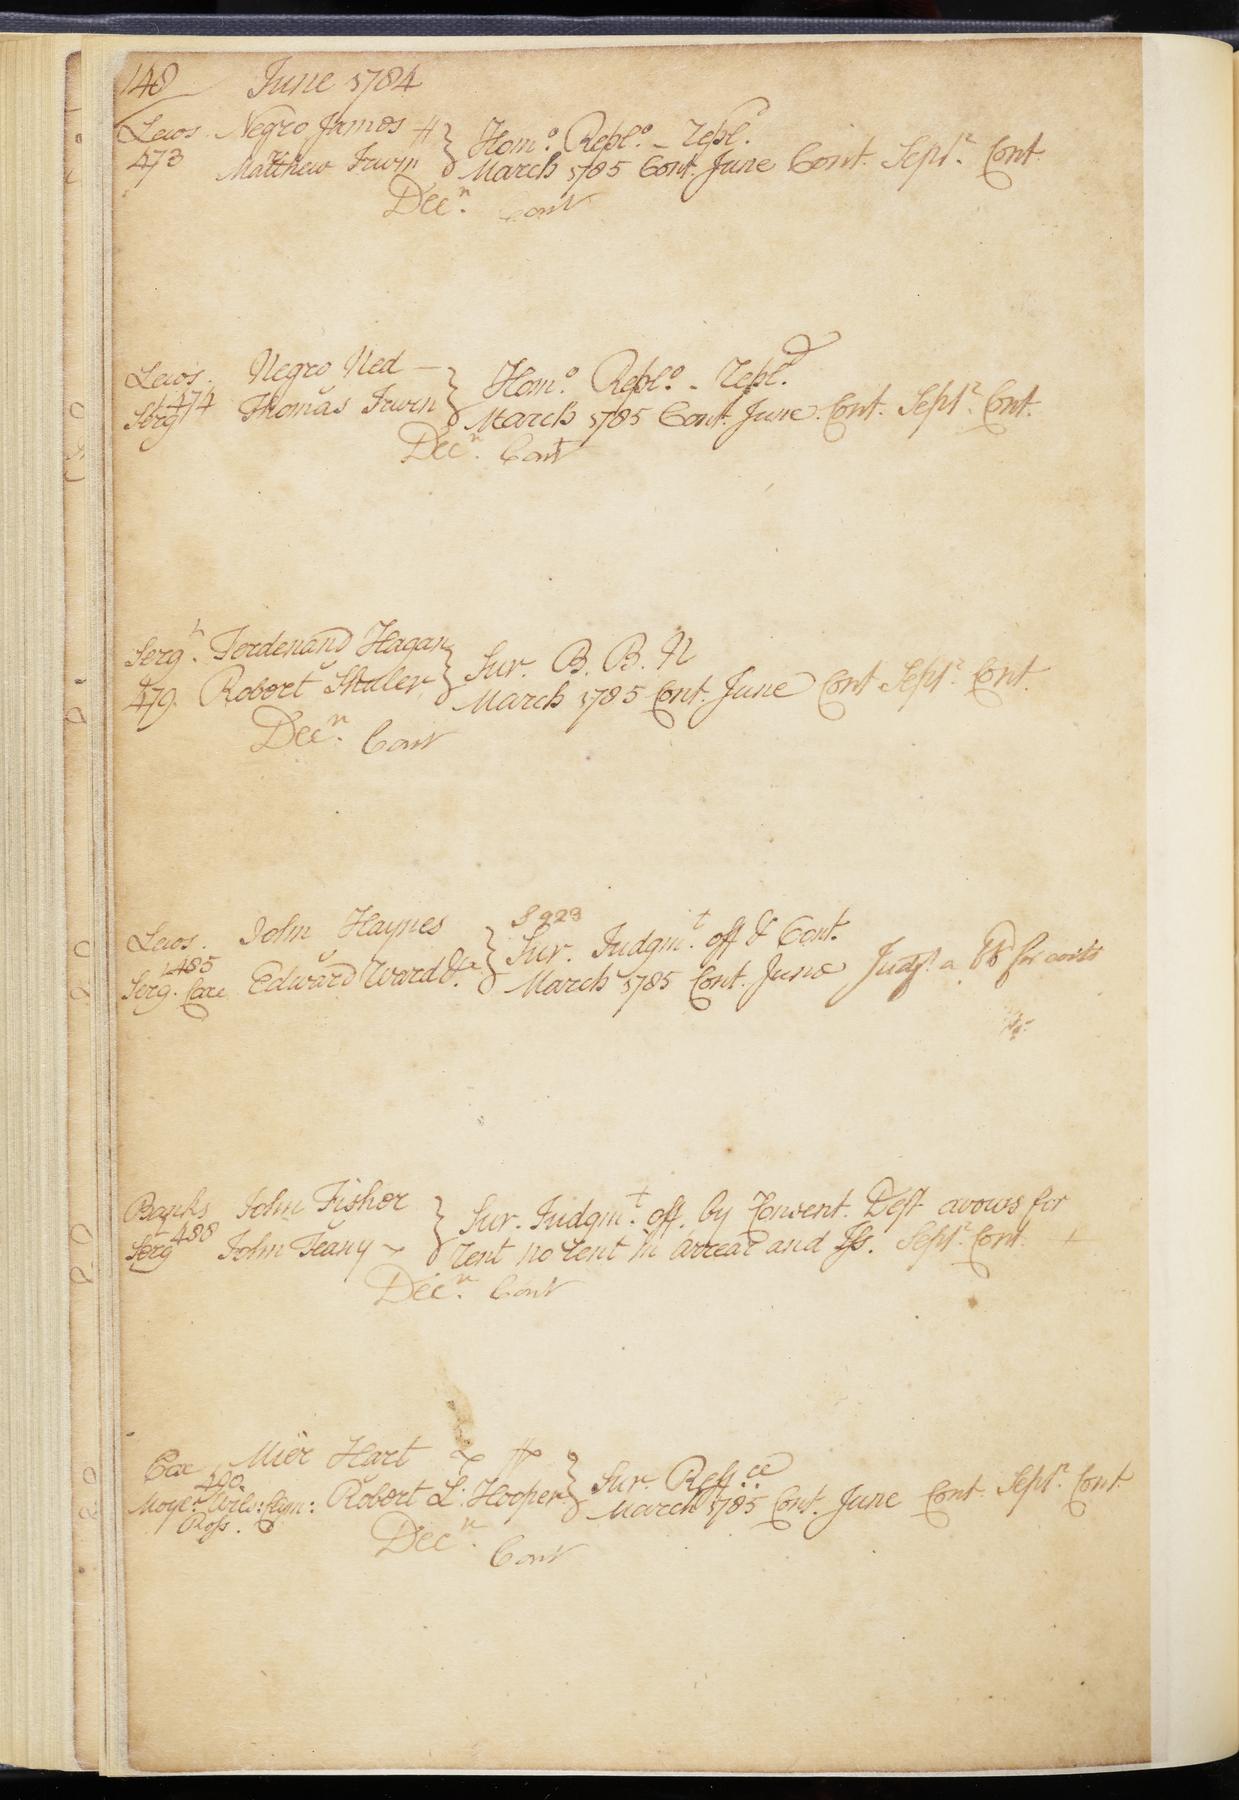 148 June 1784
Lewis. Negro James
473 Matthew Irwin } Hom.o Repl.o - Repl.d
March 1785 Cont. June Cont. Sept.r Cont.
Decr. Cont
Lewis. Negro Ned —
Serg 474 Thomas Irwin } Hom.o Repl.o - Repl.d
March 1785 Cont. June Cont. Sept.r Cont.
Decr. Cont
Serg.t Ferdenand Hagan
479. Robert Shaler } Sur. B. B. N
March 1785 Cont. June Cont Sept.r Cont.
Decr. Cont
Lewis. John Haynes
485
Serg. Edward Ward &c. } Sur. Judgm.t off & Cont.
March 1785 Cont. June Judgt. a for costs
Banks John Fisher
Serg 488 John Feany } Sur. Judgm.t off. by Consent. Deft avows for
rent no rent in arrear and Iss. Sept.r Cont
Decr. Cont
Coxe Mier Hart
490
Robert L. Hooper } Sur. Reff.ce
Ross. March 1785 Cont. June Cont. Sept.r Cont
Decr. Cont